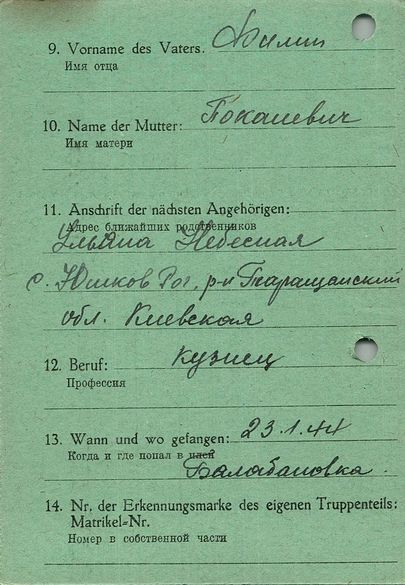 9. Vorname des Vaters.
Имя отца
10. Name der Mutter: Покалевич
Имя матери
11. Anschrift der nächsten Angehörigen:
Адрес ближайших родственников
Ульяна Небесная
с. Юшков Рог, р-н Таращанский
обл. Киевская
12. Beruf: Кузнец
Профессия
13. Wann und wo gefangen: 23.1.44
Когда и где попал в плен
Балабановка.
14. Nr. der Erkennungsmarke des eigenen Truppenteils:
Matrikel-Nr.
Номер в собственной части